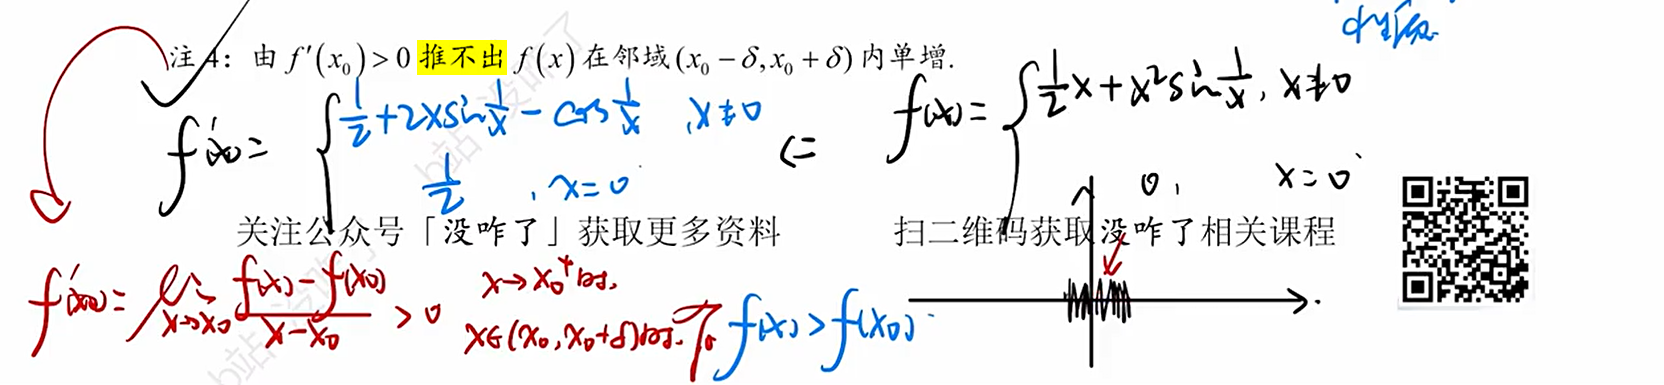 注 4：由 f′(x₀)>0 推不出 f(x) 在邻域 (x₀－δ,x₀＋δ) 内单增.
f′(x)= { 1/2+2xsin1/x－cos1/x , x≠0
1/2 , x=0
⇐ f(x)= { 1/2x+x²sin1/x, x≠0
0, x=0
关注公众号「没咋了」获取更多资料 扫二维码获取没咋了相关课程
f′(x₀)= lim x→x₀ f(x)－f(x₀) / x－x₀ >0
x→x₀⁺时,
x∈(x₀,x₀+δ)时, f(x)>f(x₀)
b站没咋了